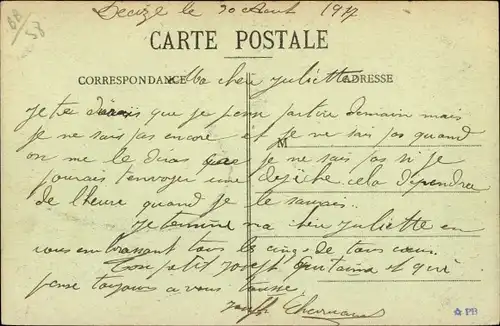 Decize le 30 Aout 1917
BB
58
CARTE POSTALE
CORRESPONDANCE
ADRESSE
Ma cher Juliette
Je te dirais que je pense partire demain mais
je ne sais pas encore et je ne sais pas quand
M
on me le diras que je ne sais pas si je
pourais t'envoyer une depêche cela dépendra
de l'heure quand je le saurais.
Je termine ma cher Juliette en
vous embrassant tous les cinq de tous coeur.
Ton petit Joseph qui t'aime et qui
pense toujours a vous tousse
Joseph
PB